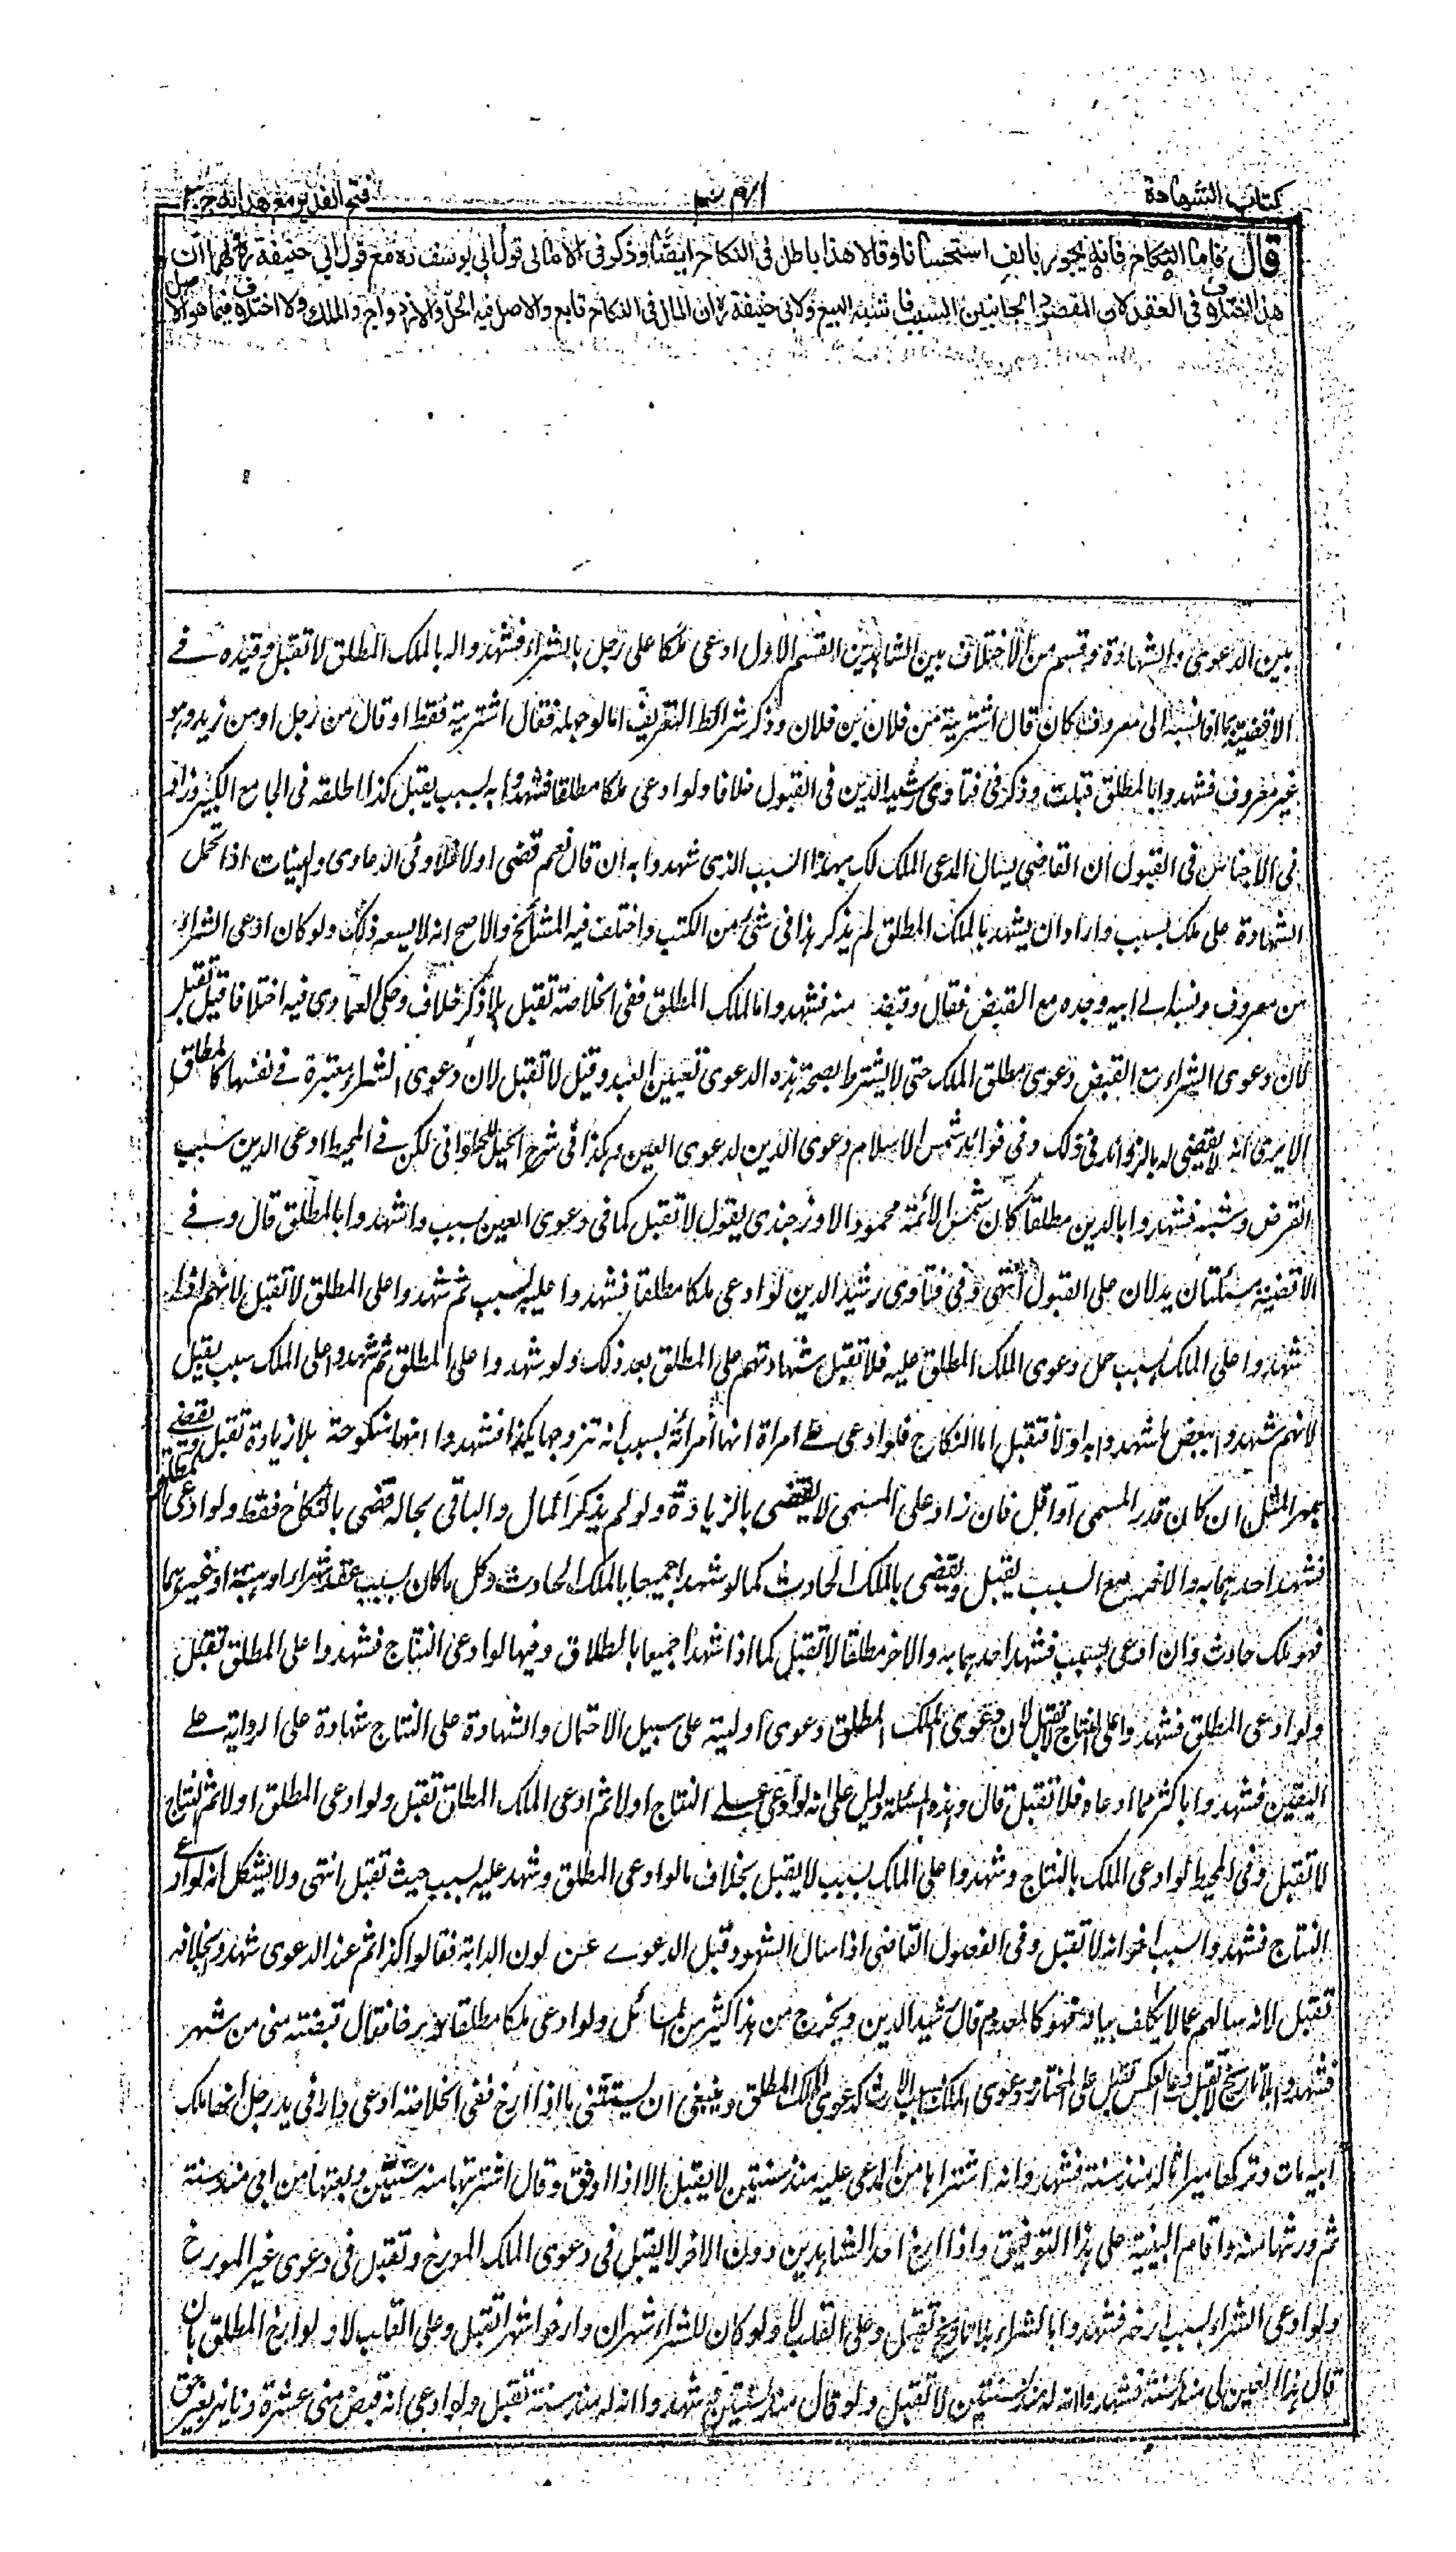 كتاب الشهادة
فتح القدير مع هدايه ج ٣
قال فاما النكاح فانه يجوز بالف استحسانا وقالا هذا باطل في النكاح ايضا وذكر في الامالى قول ابي يوسف مع قول ابي حنيفة لهما ان
هذا اختلاف في العقد لان المقصود من الجانبين السبب فاشبه البيع ولابى حنيفة ان المال فى النكاح تابع والاصل فيه الحل والازدواج والملك ولا اختلاف فيما هو الاصل
بين الدعوى والشهادة وقسم من الاختلاف بين الشاهدين القسم الاول ادعى ملكا على رجل بالشراء فشهدوا له بالملك المطلق لا تقبل وقيده فے
الاقضية بما اذا نسبه الى معروف كان قال اشتريته من فلان بن فلان وذكر شرائط التعريف اما لو جهله فقال اشتريته فقط او قال من رجل او من زيد وهو
غير معروف فشهدوا بالمطلق قبلت وذكر فى فتاوى رشيد الدين فى القبول خلافا ولو ادعى ملكا مطلقا فشهدوا به بسبب يقبل كذا اطلقه فى الجامع الكبير وزاد
فى الاجناس فى القبول ان القاضى يسال المدعى الملك لك بهذا السبب الذى شهدوا به ان قال نعم قضى او لا فلا وفى الدعاوى والبينات اذا تحمل
الشهادة على ملك بسبب واراد ان يشهد بالملك المطلق لم يذكر هذا فى شئ من الكتب واختلف فيه المشائخ والاصح انه لا يسعه ذلك ولو كان ادعى الشراء
من معروف ونسبه الے ابيه وجده مع القبض فقال وقبضته منه فشهدوا بالملك المطلق ففى الخلاصة تقبل بلا ذكر خلاف وحكى العمادى فيه اختلافا قيل تقبل
لان دعوى الشراء مع القبض دعوى مطلق الملك حتى لا يشترط لصحة هذه الدعوى تعيين العبد وقيل لا تقبل لان دعوى الشراء معتبرة فے نفسها كالمطلق
الا يرى انه لا يقضى له بالزوائد فى ذلك وفى فوائد شمس الاسلام دعوى الدين كدعوى العين وهكذا فى شرح الحيل للحلوانى لكن فے المحيط ادعى الدين بسبب
القرض وشبهه فشهدوا بالدين مطلقا كان شمس الائمة محمود الاوزجندى يقول لا تقبل كما فى دعوى العين بسبب وشهدوا بالمطلق قال وفے
الاقضية مسئلتان يدلان على القبول انتهى وفى فتاوى رشيد الدين لو ادعى ملكا مطلقا فشهدوا عليه بسبب ثم شهدوا على المطلق لا تقبل لانهم لما
شهدوا على الملك بسبب حمل دعوى الملك المطلق عليه فلا تقبل شهادتهم على المطلق بعد ذلك ولو شهدوا على المطلق ثم شهدوا على الملك بسبب يقبل
لانهم شهدوا ببعض ما شهدوا به اولا فتقبل اما النكاح فلو ادعى علے امراة انها امراته بسبب انه تزوجها بكذا فشهدوا انها منكوحة بلا زيادة تقبل ويقضے
بمهر المثل ان كان قدر المسمى او اقل فان زاد على المسمى لا يقضى بالزيادة ولو لم يذكر المال والباقى بحاله قضى بالنكاح فقط ولو ادعى المطلق
فشهد احدهما به والاخر مع السبب يقبل ويقضى بالملك الحادث كما لو شهدا جميعا بالملك الحادث وكل ما كان بسبب عقد شراء او هبة او غيرهما
فهو ملك حادث وان ادعى بسبب فشهد احدهما به والاخر مطلقا لا تقبل كما اذا شهدا جميعا بالطلاق وفيها لو ادعى النتاج فشهدوا على المطلق تقبل
ولو ادعى المطلق فشهدوا على النتاج لا تقبل لان دعوى الملك المطلق دعوى اولية على سبيل الاحتمال والشهادة على النتاج شهادة على الرواية علے
اليقين فشهدوا باكثر مما ادعاه فلا تقبل قال وهذه المسئلة دليل على انه لو ادعى علے النتاج اولا ثم ادعى الملك المطلق تقبل ولو ادعى المطلق اولا ثم النتاج
لا تقبل وفى المحيط لو ادعى الملك بالنتاج وشهدوا على الملك بسبب لا يقبل بخلاف ما لو ادعى المطلق وشهد عليه بسبب حيث تقبل انتهى ولا يشكل انه لو ادعى
النتاج فشهدوا بسبب اخر انه لا تقبل وفى الفصول القاضى اذا سال الشهود قبل الدعوے عن لون الدابة فقالوا كذا ثم عند الدعوى شهدوا بخلافه
تقبل لانه سالهم عما لا يكلف بيانه فهو كالمعدوم قال رشيد الدين ويخرج من هذا كثير من المسائل ولو ادعى ملكا مطلقا مؤرخا فقال قبضته منى من شهر
فشهدوا بلا تاريخ لا تقبل وعلى العكس تقبل على المختار ودعوى الملك بسبب الارث كدعوى الملك المطلق وينبغى ان يستثنى ما اذا ارخ ففى الخلاصة ادعى دارا فى يد رجل انها ملك
ابيه مات وتركها ميراثا له منذ سنة فشهدوا انه اشتراها من المدعى عليه منذ سنتين لا يقبل الا اذا وفق وقال اشتريتها منه منذ سنتين وبعتها من ابى منذ سنة
ثم ورثتها منه واقام البينة على هذا التوفيق واذا ارخ احد الشاهدين دون الاخر لا يقبل فى دعوى الملك المورخ وتقبل فى دعوى غير المورخ
ولو ادعى الشراء بسبب ارخه فشهدوا بالشراء بلا تاريخ تقبل وعلى القلب لا ولو كان للشراء شهران وارخوا شهرا تقبل وعلى القلب لا ولو ارخ المطلق بان
قال هذا العين لى منذ سنة فشهدوا انه له منذ سنتين لا تقبل ولو قال منذ سنتين وشهدوا انه له منذ سنة تقبل ولو ادعى انه قبض منى عشرة دنانير بغير حق